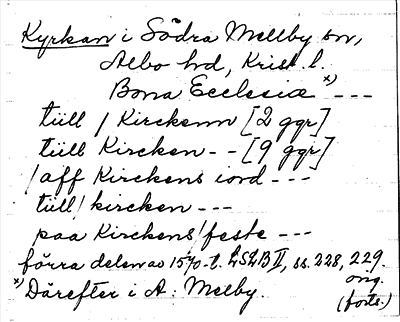 Kyrkan i Södra Mellby sn,
Albo hd, Krist. l.
Bona Ecclesiæ x) ---
tiill / Kirckenn [2 ggr]
tiill Kircken -- [9 ggr]
/ aff Kirckens iord ---
tiill / kircken ---
paa Kirckens / feste ---
förra delen av 1570-t. LSLB II, ss. 228, 229.
orig.
x) Därefter i A: Melby.
(forts.)